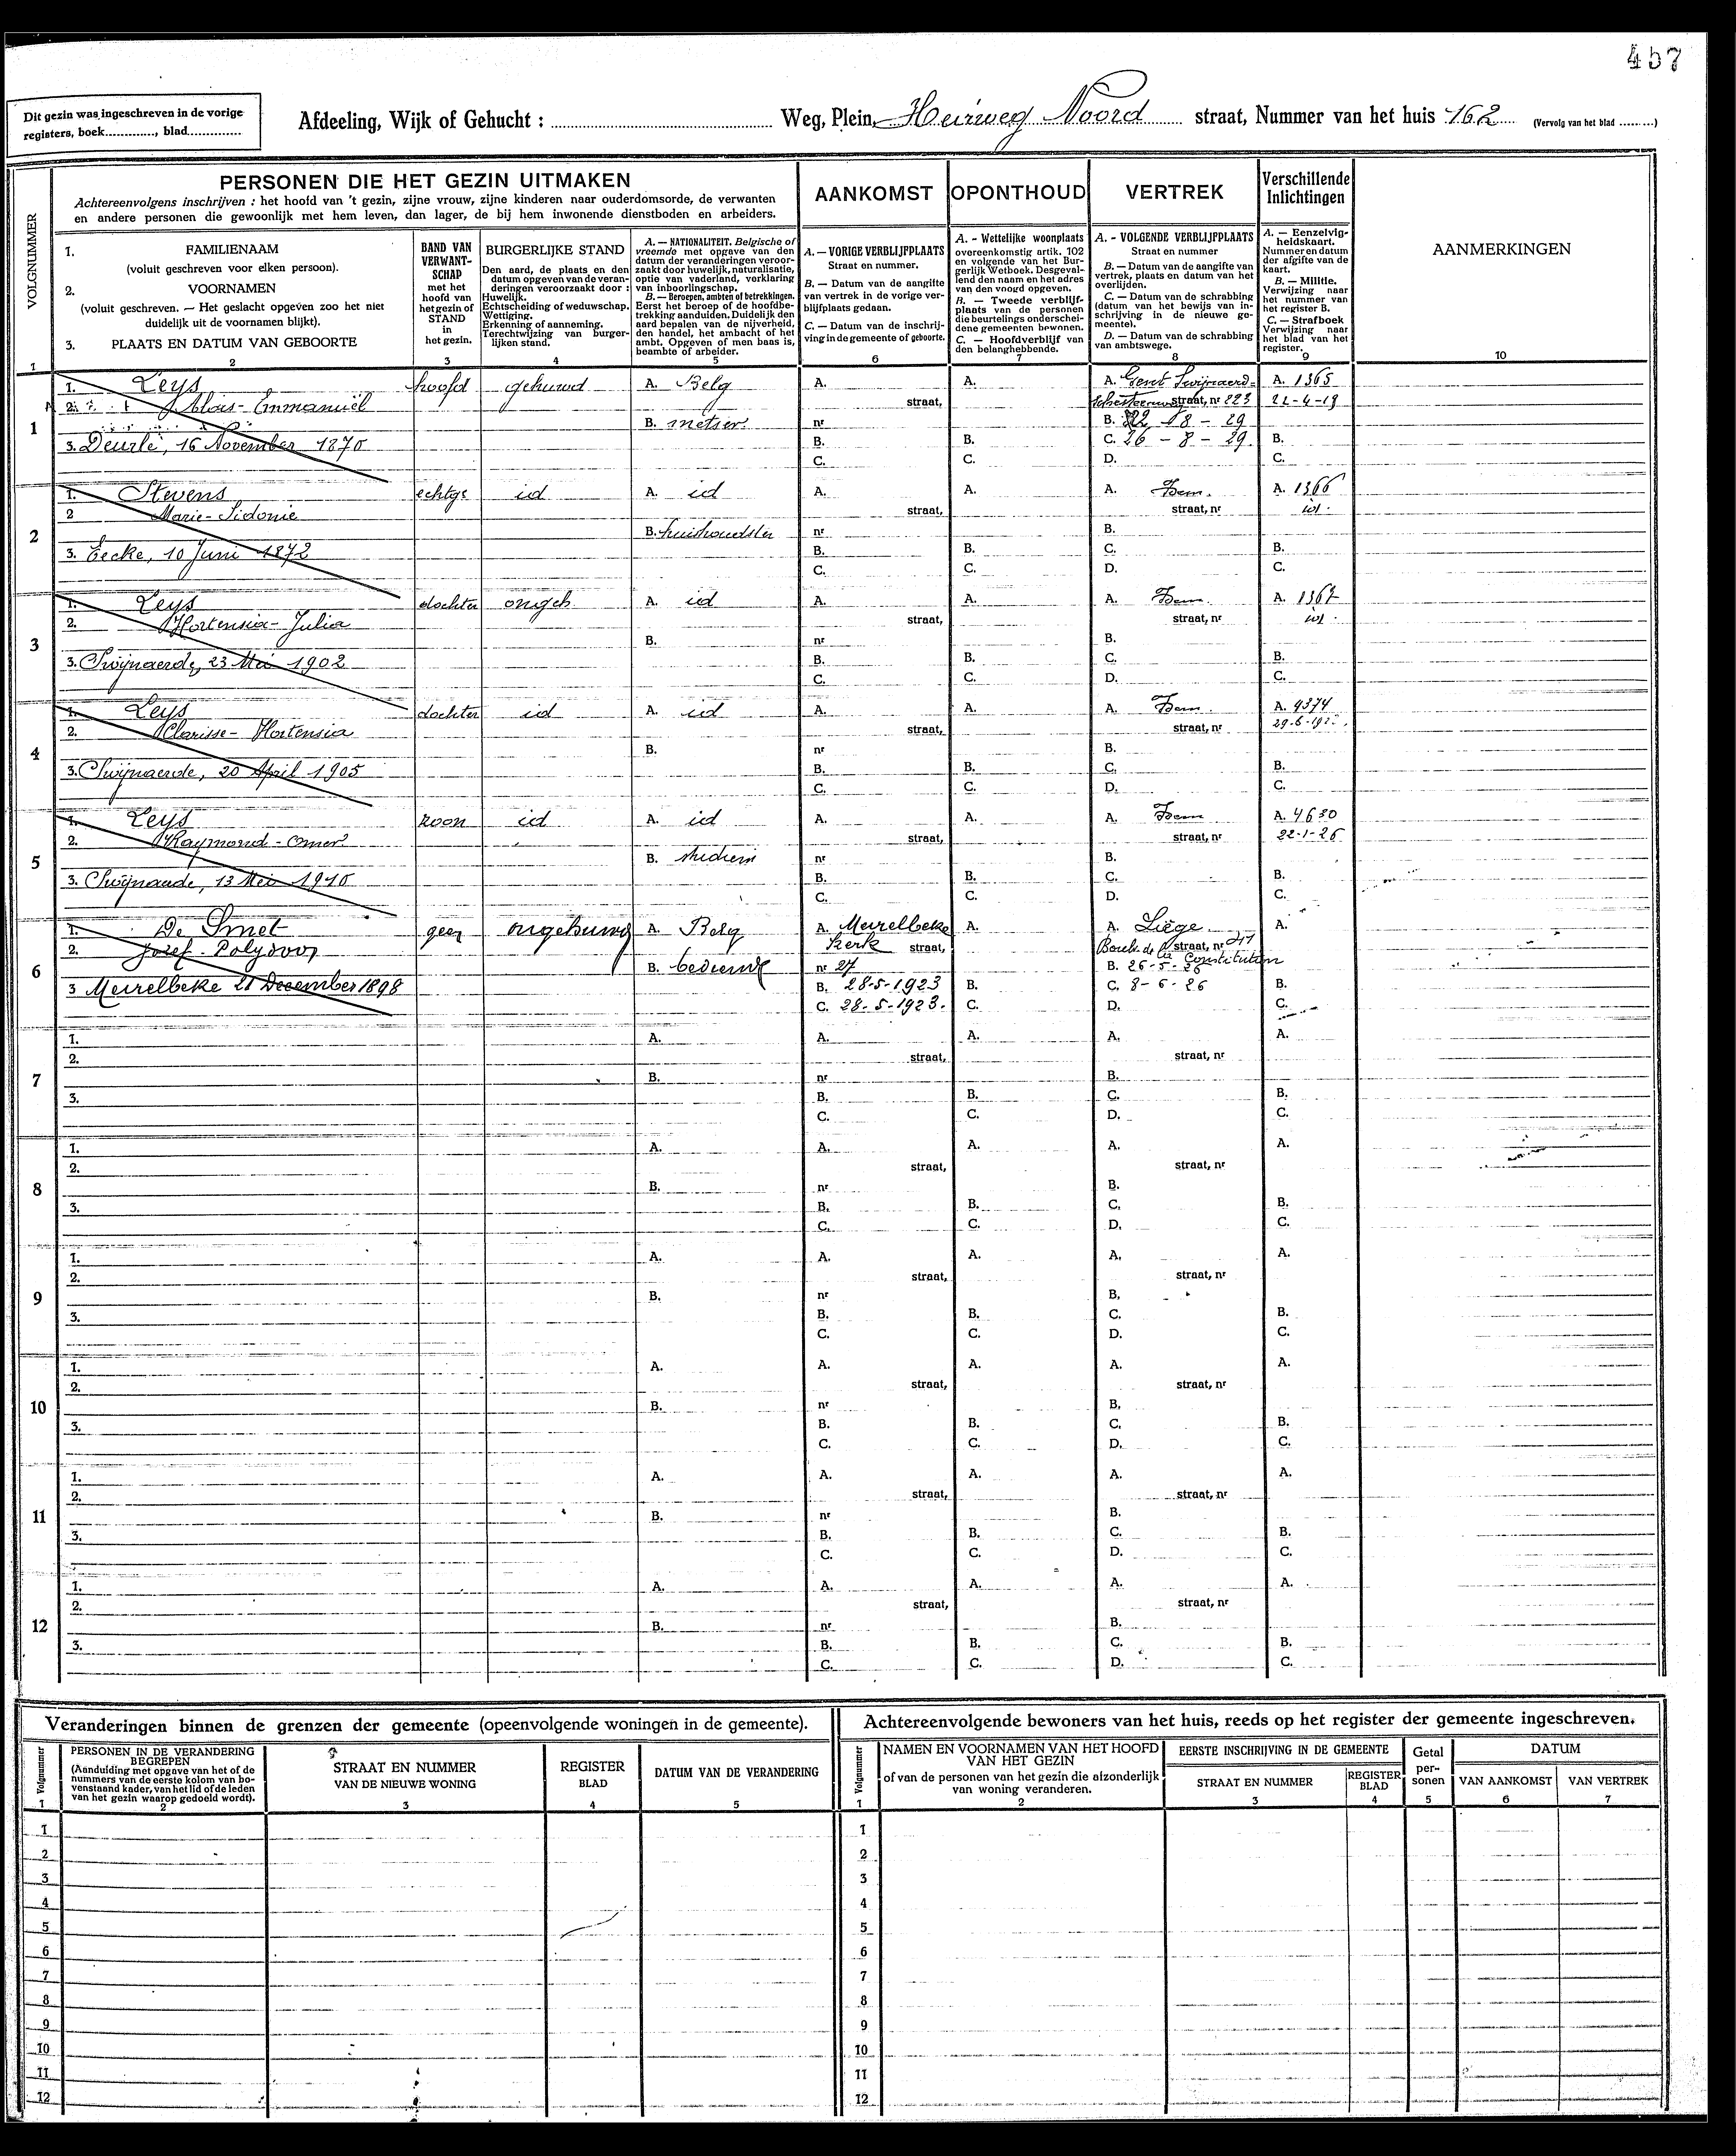 457
Dit gezin was ingeschreven in de vorige
registers, boek............, blad.............
Afdeeling, Wijk of Gehucht : .......... Weg, Plein, Heirweg Noord straat, Nummer van het huis 162 (Vervolg van het blad .........)
VOLGNUMMER
1
PERSONEN DIE HET GEZIN UITMAKEN
Achtereenvolgens inschrijven : het hoofd van 't gezin, zijne vrouw, zijne kinderen naar ouderdomsorde, de verwanten
en andere personen die gewoonlijk met hem leven, dan lager, de bij hem inwonende dienstboden en arbeiders.
1. FAMILIENAAM
(voluit geschreven voor elken persoon).
2. VOORNAMEN
(voluit geschreven. — Het geslacht opgeven zoo het niet
duidelijk uit de voornamen blijkt).
3. PLAATS EN DATUM VAN GEBOORTE
2
BAND VAN
VERWANT-
SCHAP
met het
hoofd van
het gezin of
STAND
in
het gezin.
3
BURGERLIJKE STAND
Den aard, de plaats en den
datum opgeven van de veran-
deringen veroorzaakt door :
Huwelijk.
Echtscheiding of weduwschap.
Wettiging.
Erkenning of aanneming.
Terechtwijzing van burger-
lijken stand.
4
A. — NATIONALITEIT. Belgische of
vreemde met opgave van den
datum der veranderingen veroor-
zaakt door huwelijk, naturalisatie,
optie van vaderland, verklaring
van inboorlingschap.
B. — Beroepen, ambten of betrekkingen.
Eerst het beroep of de hoofdbe-
trekking aanduiden. Duidelijk den
aard bepalen van de nijverheid,
den handel, het ambacht of het
ambt. Opgeven of men baas is,
beambte of arbeider.
5
AANKOMST
A. — VORIGE VERBLIJFPLAATS
Straat en nummer.
B. — Datum van de aangifte
van vertrek in de vorige ver-
blijfplaats gedaan.
C. — Datum van de inschrij-
ving in de gemeente of geboorte.
6
OPONTHOUD
A. - Wettelijke woonplaats
overeenkomstig artik. 102
en volgende van het Bur-
gerlijk Wetboek. Desgeval-
lend den naam en het adres
van den voogd opgeven.
B. — Tweede verblijf-
plaats van de personen
die beurtelings onderschei-
dene gemeenten bewonen.
C. — Hoofdverblijf van
den belanghebbende.
7
VERTREK
A. - VOLGENDE VERBLIJFPLAATS
Straat en nummer
B. — Datum van de aangifte van
vertrek, plaats en datum van het
overlijden.
C. — Datum van de schrabbing
(datum van het bewijs van in-
schrijving in de nieuwe ge-
meente).
D. — Datum van de schrabbing
van ambtswege.
8
Verschillende
Inlichtingen
A. — Eenzelvig-
heidskaart.
Nummer en datum
der afgifte van de
kaart.
B. — Militie.
Verwijzing naar
het nummer van
het register B.
C. — Strafboek
Verwijzing naar
het blad van het
register.
9
AANMERKINGEN
10
1
1. Leys hoofd gehuwd A. Belg A. A. A. Gent Swijnaerd- A. 1365
2. Aloïs-Emmanuël straat, straat, nr 223 22-4-19
B. metser nr B. 22 - 8 - 29
3. Deurle, 16 November 1870 B. B. C. 26 - 8 - 29. B.
C. C. D. C.
2
1. Stevens echtge id A. id A. A. A. Idem. A. 1366
2 Marie-Sidonie straat, straat, nr id.
B. huishoudster nr B.
3. Eecke, 10 Juni 1872 B. B. C. B.
C. C. D. C.
3
1. Leys dochter ongeh. A. id A. A. A. Idem. A. 1367
2. Hortensia-Julia straat, straat, nr id.
B. nr B.
3. Swijnaerde, 23 Mei 1902 B. B. C. B.
C. C. D. C.
4
1. Leys dochter id A. id A. A. A. Idem. A. 4374
2. Clarisse-Hortensia straat, straat, nr
B. nr B.
3. Swijnaerde, 20 April 1905 B. B. C. B.
C. C. D. C.
5
1. Leys zoon id A. id A. A. A. Idem A. 4630
2. Raymond-Omer straat, straat, nr 22-1-26
B. nr B.
3. Swijnaerde, 13 Mei 1910 B. B. C. B.
C. C. D. C.
6
1. De Smet geen ongehuwd A. Belg A. Meirelbeke A. A. Liège A.
2. Jozef-Polydoor Kerk straat, Boulv. de la Constitution straat, nr 211
B. bediende nr 27 B. 26-5-26
3 Meirelbeke 21 December 1898 B. 28-5-1923 B. C. 8-6-26 B.
C. 28-5-1923. C. D. C.
7
1. A. A. A. A. A.
2. straat, straat, nr
B. nr B.
3. B. B. C. B.
C. C. D. C.
8
1. A. A. A. A. A.
2. straat, straat, nr
B. nr B.
3. B. B. C. B.
C. C. D. C.
9
1. A. A. A. A. A.
2. straat, straat, nr
B. nr B.
3. B. B. C. B.
C. C. D. C.
10
1. A. A. A. A. A.
2. straat, straat, nr
B. nr B.
3. B. B. C. B.
C. C. D. C.
11
1. A. A. A. A. A.
2. straat, straat, nr
B. nr B.
3. B. B. C. B.
C. C. D. C.
12
1. A. A. A. A. A.
2. straat, straat, nr
B. nr B.
3. B. B. C. B.
C. C. D. C.
Veranderingen binnen de grenzen der gemeente (opeenvolgende woningen in de gemeente).
Volgnummer
1
PERSONEN IN DE VERANDERING
BEGREPEN
(Aanduiding met opgave van het of de
nummers van de eerste kolom van bo-
venstaand kader, van het lid of de leden
van het gezin waarop gedoeld wordt).
2
STRAAT EN NUMMER
VAN DE NIEUWE WONING
3
REGISTER
BLAD
4
DATUM VAN DE VERANDERING
5
1
2
3
4
5
6
7
8
9
10
11
12
Achtereenvolgende bewoners van het huis, reeds op het register der gemeente ingeschreven.
Volgnummer
1
NAMEN EN VOORNAMEN VAN HET HOOFD
VAN HET GEZIN
of van de personen van het gezin die afzonderlijk
van woning veranderen.
2
EERSTE INSCHRIJVING IN DE GEMEENTE
STRAAT EN NUMMER
3
REGISTER
BLAD
4
Getal
per-
sonen
5
DATUM
VAN AANKOMST
6
VAN VERTREK
7
1
2
3
4
5
6
7
8
9
10
11
12